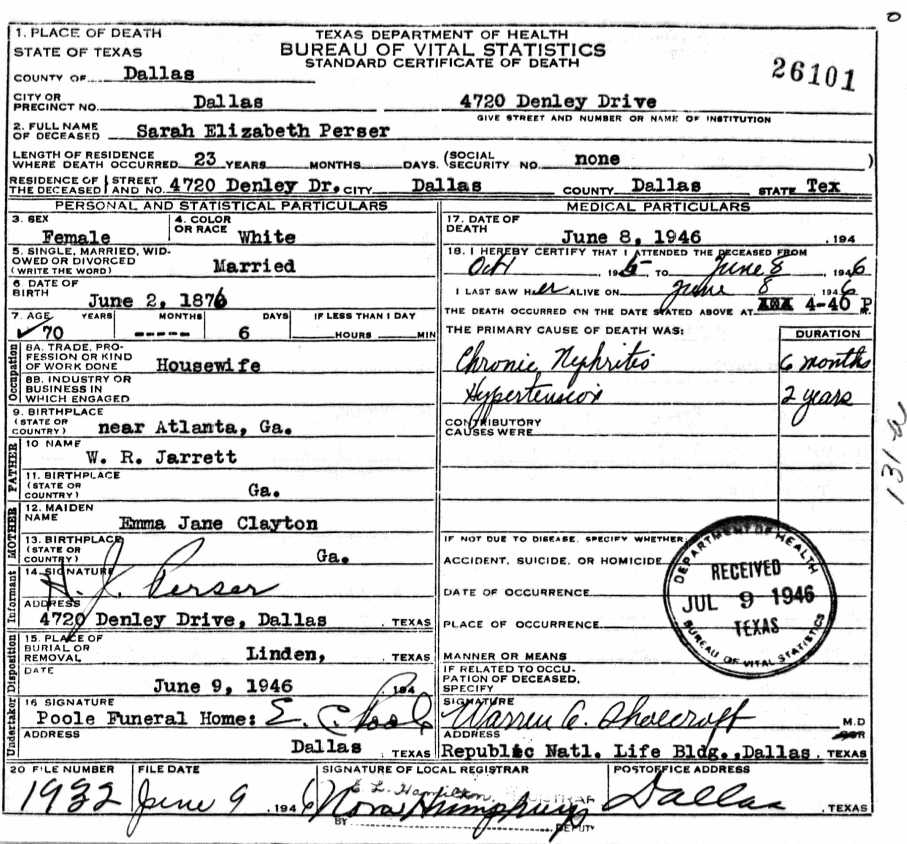 1. PLACE OF DEATH
STATE OF TEXAS
COUNTY OF Dallas
TEXAS DEPARTMENT OF HEALTH
BUREAU OF VITAL STATISTICS
STANDARD CERTIFICATE OF DEATH
26101
CITY OR
PRECINCT NO. Dallas 4720 Denley Drive
GIVE STREET AND NUMBER OR NAME OF INSTITUTION
2. FULL NAME
OF DECEASED Sarah Elizabeth Perser
LENGTH OF RESIDENCE
WHERE DEATH OCCURRED 23 YEARS MONTHS DAYS. (SOCIAL SECURITY NO. none )
RESIDENCE OF THE DECEASED } STREET AND NO. 4720 Denley Dr. CITY Dallas COUNTY Dallas STATE Tex
PERSONAL AND STATISTICAL PARTICULARS
3. SEX
Female
4. COLOR
OR RACE White
5. SINGLE, MARRIED, WID-
OWED OR DIVORCED
(WRITE THE WORD) Married
6 DATE OF
BIRTH June 2, 1876
7. AGE YEARS MONTHS DAYS IF LESS THAN 1 DAY
70 ----- 6 HOURS MIN
Occupation
8A. TRADE, PRO-
FESSION OR KIND
OF WORK DONE Housewife
8B. INDUSTRY OR
BUSINESS IN
WHICH ENGAGED
9. BIRTHPLACE
(STATE OR
COUNTRY) near Atlanta, Ga.
FATHER
10 NAME
W. R. Jarrett
11. BIRTHPLACE
(STATE OR
COUNTRY) Ga.
MOTHER
12. MAIDEN
NAME Emma Jane Clayton
13. BIRTHPLACE
(STATE OR
COUNTRY) Ga.
Informant
14. SIGNATURE
H. J. Perser
ADDRESS
4720 Denley Drive, Dallas , TEXAS
Disposition
15. PLACE OF
BURIAL OR
REMOVAL Linden, TEXAS
DATE
June 9, 1946 194
Undertaker
16 SIGNATURE
Poole Funeral Home: E. C. Poole
ADDRESS
Dallas , TEXAS
MEDICAL PARTICULARS
17. DATE OF
DEATH June 8, 1946 , 194
18. I HEREBY CERTIFY THAT I ATTENDED THE DECEASED FROM
Oct , 1945 TO June 8 , 1946
I LAST SAW Her ALIVE ON June 8 1946
THE DEATH OCCURRED ON THE DATE STATED ABOVE AT 4-40 P.
THE PRIMARY CAUSE OF DEATH WAS: DURATION
Chronic Nephritis 6 months
Hypertension 2 years
CONTRIBUTORY
CAUSES WERE
IF NOT DUE TO DISEASE, SPECIFY WHETHER:
ACCIDENT, SUICIDE, OR HOMICIDE
DATE OF OCCURRENCE
PLACE OF OCCURRENCE
MANNER OR MEANS
IF RELATED TO OCCU-
PATION OF DECEASED,
SPECIFY
DEPARTMENT OF HEALTH
RECEIVED
JUL 9 1946
TEXAS
BUREAU OF VITAL STATISTICS
SIGNATURE
Warren C. Shoecroft M.D
ADDRESS
Republic Natl. Life Bldg., Dallas , TEXAS
131-a
20 FILE NUMBER FILE DATE SIGNATURE OF LOCAL REGISTRAR POSTOFFICE ADDRESS
E L. Hamilton
1932 June 9 , 1946 Nora Humphreys Dallas , TEXAS
BY DEPUTY